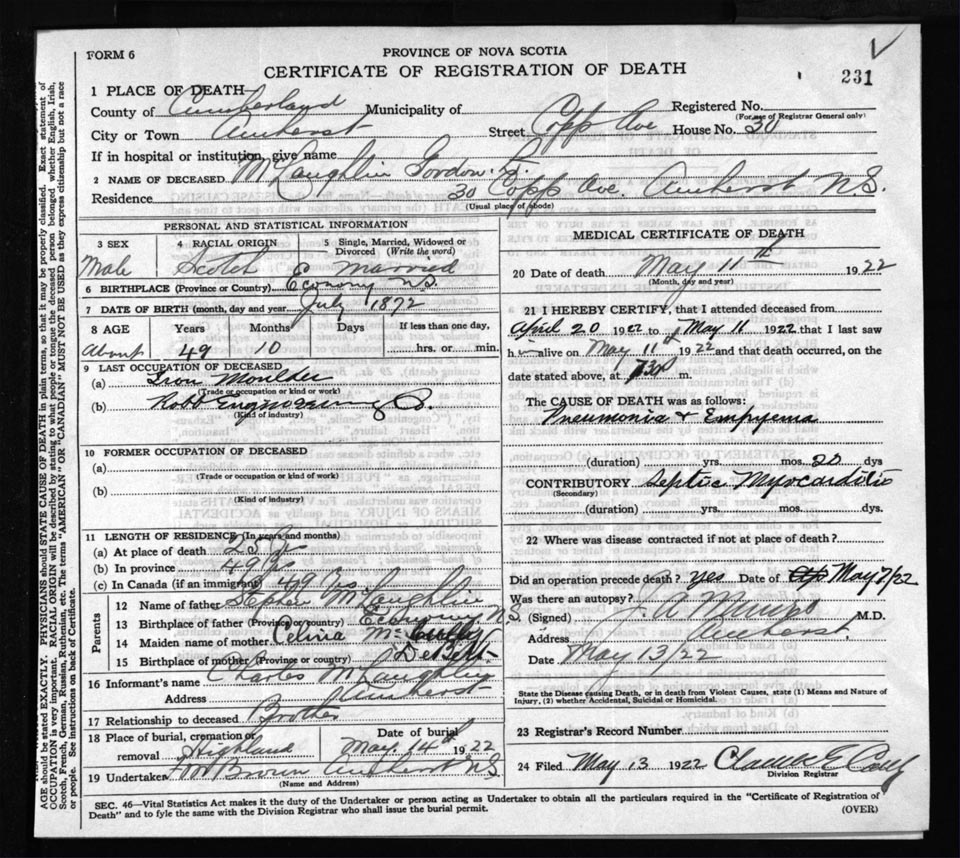 FORM 6
PROVINCE OF NOVA SCOTIA
CERTIFICATE OF REGISTRATION OF DEATH
231
1 PLACE OF DEATH—
County of Cumberland Municipality of Registered No.
(For use of Registrar General only)
City or Town Amherst Street Copp Ave House No. 30
If in hospital or institution, give name
2 NAME OF DECEASED McLaughlin Gordon
Residence 30 Copp Ave. Amherst N.S.
(Usual place of abode)
PERSONAL AND STATISTICAL INFORMATION
3 SEX 4 RACIAL ORIGIN 5 Single, Married, Widowed or Divorced (Write the word)
Male Scotch married
6 BIRTHPLACE (Province or Country) Economy N.S.
7 DATE OF BIRTH (month, day and year) July 1872
8 AGE Years Months Days If less than one day,
About 49 10 hrs. or min.
9 LAST OCCUPATION OF DECEASED
(a) Iron Moulder
(Trade or occupation or kind or work)
(b) Robb Engineering Co.
(Kind of industry)
10 FORMER OCCUPATION OF DECEASED
(a)
(Trade or occupation or kind of work)
(b)
(Kind of industry)
11 LENGTH OF RESIDENCE (In years and months)
(a) At place of death 25 yrs
(b) In province 49 yrs
(c) In Canada (if an immigrant) 49 yrs
Parents
12 Name of father Stephen McLaughlin
13 Birthplace of father (Province or country) Economy N.S.
14 Maiden name of mother Mc
15 Birthplace of mother (Province or country) DeBert
16 Informant's name Charles McLaughlin
Address Amherst
17 Relationship to deceased Brother
18 Place of burial, cremation or removal Highland Date of burial May 14th 1922
19 Undertaker Brown Amherst N.S.
(Name and Address)
MEDICAL CERTIFICATE OF DEATH
20 Date of death May 11th 1922
(Month, day and year)
21 I HEREBY CERTIFY, that I attended deceased from
April 20 1922 to May 11 1922 that I last saw
h alive on May 11 1922 and that death occurred, on the
date stated above, at m.
The CAUSE OF DEATH was as follows:
Pneumonia & Empyema
(duration) yrs. mos. 20 dys
CONTRIBUTORY Septic Myocarditis
(Secondary)
(duration) yrs. mos. dys.
22 Where was disease contracted if not at place of death?
Did an operation precede death? yes Date of May 7/22
Was there an autopsy?
(Signed) J. A. Munro M.D.
Address Amherst.
Date May 13/22
State the Disease causing Death, or in death from Violent Causes, state (1) Means and Nature of
Injury, (2) whether Accidental, Suicidal or Homicidal.
23 Registrar's Record Number
24 Filed May 13 1922
Division Registrar
SEC. 46—Vital Statistics Act makes it the duty of the Undertaker or person acting as Undertaker to obtain all the particulars required in the "Certificate of Registration of
Death" and to fyle the same with the Division Registrar who shall issue the burial permit.
(OVER)
AGE should be stated EXACTLY. PHYSICIANS should STATE CAUSE OF DEATH in plain terms, so that it may be properly classified. Exact statement of
OCCUPATION is very important. RACIAL ORIGIN will be described by stating to what people or tongue the deceased person belonged whether English, Irish,
Scotch, French, German, Russian, Ruthenian, etc. The terms "AMERICAN" OR "CANADIAN" MUST NOT BE USED as they express citizenship but not a race
or people. See instructions on back of Certificate.